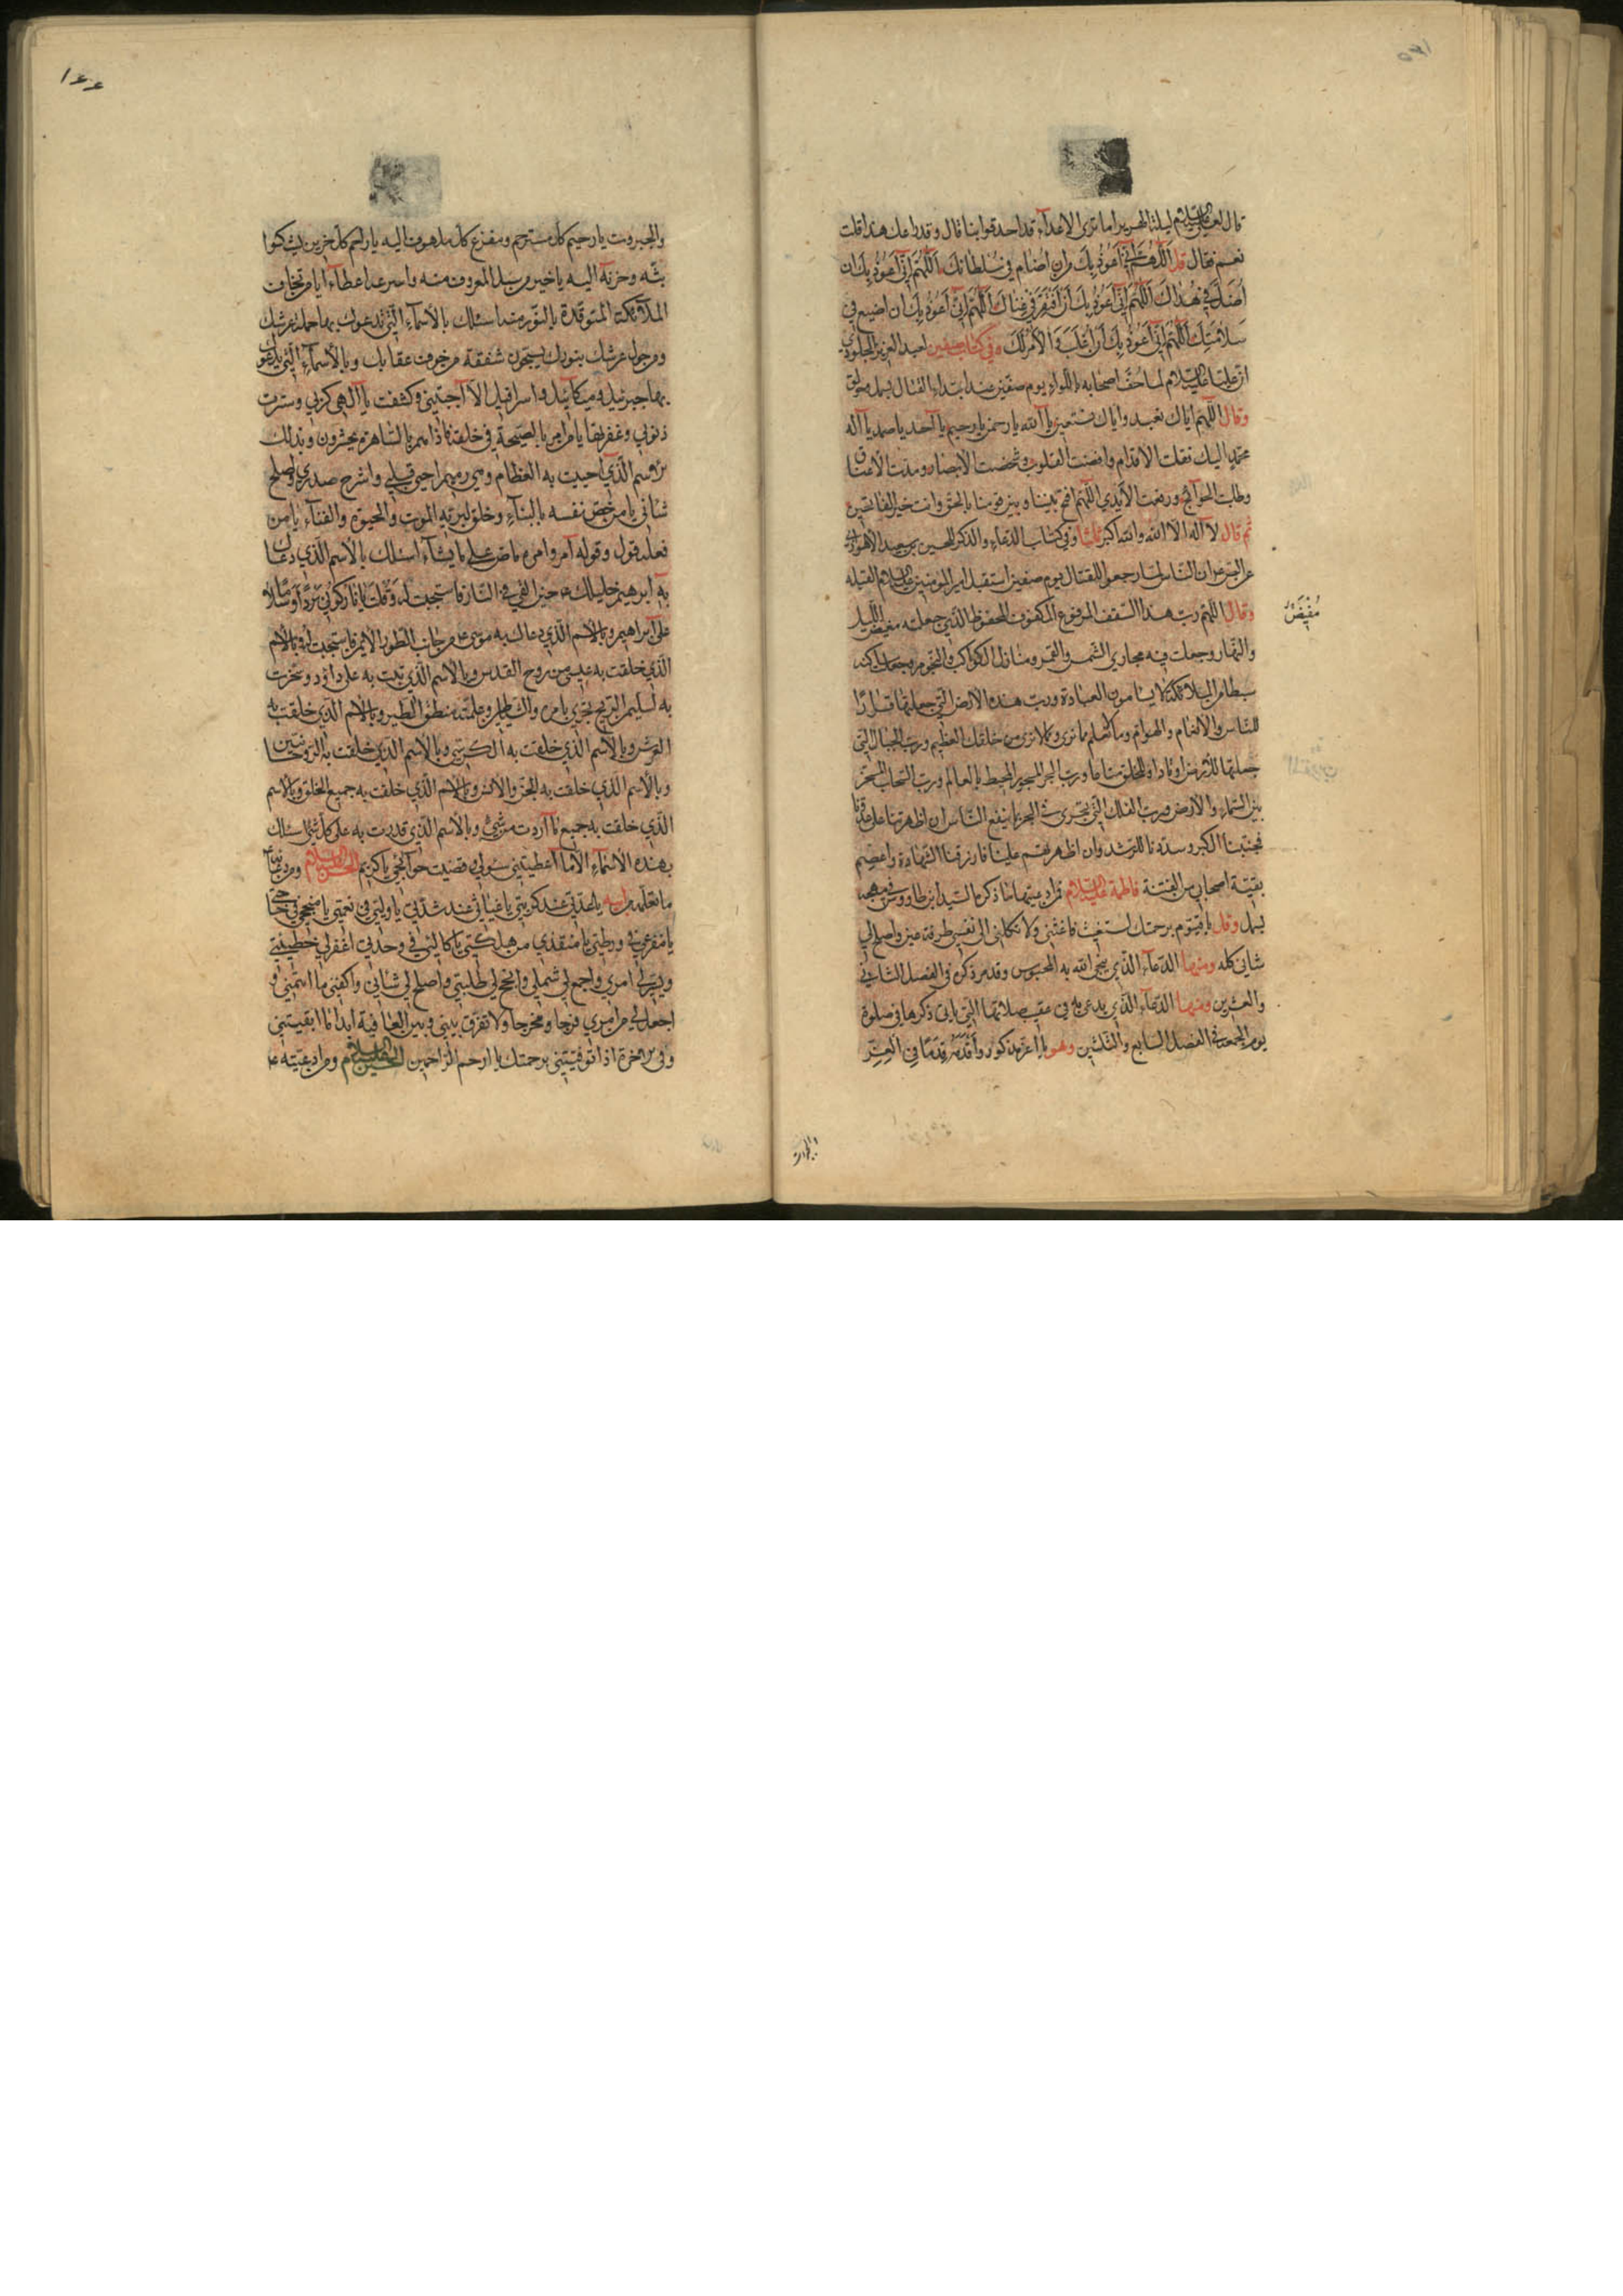 ١٦٥
قال لعلي عليه السلام ليلة الهرير اما ترى الاعداء قد احدقوا بنا قال وقد راعك هذا قلت
نعم فقال قل اللهم اني اعوذ بك من ان اضام في سلطانك اللهم اني اعوذ بك ان
اضل في هداك اللهم اني اعوذ بك ان افتقر في غناك اللهم اني اعوذ بك ان اضيع في
سلامتك اللهم اني اعوذ بك ان اغلب والامر لك وفي كتاب صفين لعبد العزيز الجلودي
ان عليا عليه السلام لما اصحابه باللواء يوم صفين عند ابتداء القتال بسمل وحولق
وقال اللهم اياك نعبد واياك نستعين يا الله يا رحمن يا رحيم يا احد يا صمد يا اله
محمد اليك نقلت الاقدام وافضت القلوب وشخصت الابصار ومدت الاعناق
وطلبت الحوائج ورفعت الايدي اللهم افتح بيننا وبين قومنا بالحق وانت خير الفاتحين
ثم قال لا اله الا الله والله اكبر ثلثا وفي كتاب الدعاء والذكر للحسين بن سعيد الاهوازي
ان الناس لما رجعوا للقتال يوم صفين استقبل امير المؤمنين عليه السلام القبلة
وقال اللهم رب هذا السقف المرفوع المكفوف المحفوظ الذي جعلته مغيض الليل
مُفِيضَ
والنهار وجعلت فيه مجاري الشمس والقمر ومنازل الكواكب والنجوم وجعلت ساكنه
سبطا من الملائكة لا يسامون العبادة ورب هذه الارض التي جعلتها قرارا
للناس والانعام والهوام وما نعلم وما نرى وما لا نرى من خلقك العظيم ورب الجبال التي
جعلتها للارض اوتادا وللخلق متاعا ورب البحر المسجور المحيط بالعالم ورب السحاب المسخر
بين السماء والارض ورب الفلك التي تجري في البحر بما ينفع الناس ان اظهرتنا على عدونا
فجنبنا الكبر وسددنا للرشد وان اظهرتهم علينا فارزقنا الشهادة واعصم
بقية اصحابي من الفتنة فاطمة عليها السلام فمن ادعيتها ما ذكره السيد ابن طاووس في مهجه
بسمل وقل يا قيوم برحمتك استغيث فاغثني ولا تكلني الى نفسي طرفة عين واصلح لي
شاني كله ومنها الدعاء الذي نجى الله به المحبوس وقد مر ذكره في الفصل الثاني
والعشرين ومنها الدعاء الذي يدعى به في عقب صلاتها التي ياتي ذكرها في صلوة
يوم الجمعة في الفصل السابع والثلثين وهو يا اعز مذكور واقدمه قدما في العز
والجبروت
١٦٦
والجبروت يا رحيم كل مسترحم ومفزع كل ملهوف اليه يا راحم كل حزين يشكوا
بثه وحزنه اليه يا خير من سئل المعروف منه واسرعه اعطاء يا من تخاف
الملائكة المتوقدة بالنور منه اسئلك بالاسماء التي تدعوك بها حملة عرشك
ومن حول عرشك بنورك يسبحون شفقة من خوف عقابك وبالاسماء التي يدعوك
بها جبرئيل وميكائيل واسرافيل الا اجبتني وكشفت يا الهي كربتي وسترت
ذنوبي وغفرتها يا من امر بالصيحة في خلقه فاذا هم بالساهرة يحشرون وبذلك
الاسم الذي احييت به العظام وهي رميم احي قلبي واشرح صدري واصلح
شاني يا من خص نفسه بالبقاء وخلق لبريته الموت والحيوة والفناء يا من
فعله قول وقوله امر وامره ماض على ما يشاء اسئلك بالاسم الذي دعاك
به ابرهيم خليلك حين القي في النار فاستجبت له وقلت يا نار كوني بردا وسلاما
على ابراهيم وبالاسم الذي دعاك به موسى من جانب الطور الايمن فاستجبت له وبالاسم
الذي خلقت به عيسى من روح القدس وبالاسم الذي تبت به على داود وسخرت
به لسليمن الريح تجري بامره والشياطين وعلمته منطق الطير وبالاسم الذي خلقت به
العرش وبالاسم الذي خلقت به الكرسي وبالاسم الذي خلقت به الروحانيين
وبالاسم الذي خلقت به الجن والانس وبالاسم الذي خلقت به جميع الخلق وبالاسم
الذي خلقت به جميع ما اردت من شيء وبالاسم الذي قدرت به على كل شيء اسئلك
بهذه الاسماء الا ما اعطيتني سؤلي وقضيت حوائجي يا كريم الحسن عليه السلام ومن دعائه
ما تعلمه من امه يا عدتي عند كربتي يا غياثي عند شدتي يا وليي في نعمتي يا منجحي في حاجتي
يا مفزعي في ورطتي يا منقذي من هلكتي يا كالئي في وحدتي اغفر لي خطيئتي
ويسر لي امري واجمع لي شملي وانجح لي طلبتي واصلح لي شاني واكفني ما اهمني و
اجعل لي من امري فرجا ومخرجا ولا تفرق بيني وبين العافية ابدا ما ابقيتني
وفي الاخرة اذا توفيتني برحمتك يا ارحم الراحمين الحسين عليه السلام ومن ادعيته